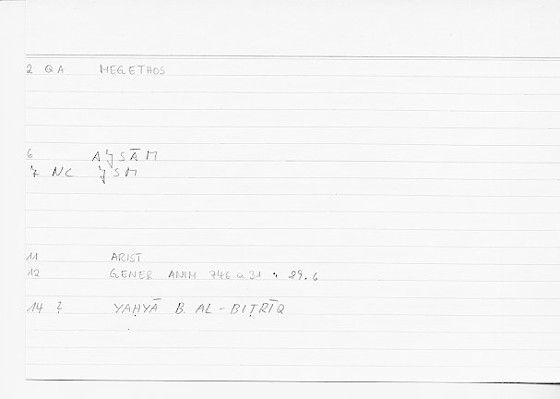 2 QA MEGETHOS
6 AǦSĀM
7 NC ǦSM
11 ARIST
12 GENER ANIM 746 a 31 29.6
14 ? YAḤYĀ B. AL-BIṬRĪQ